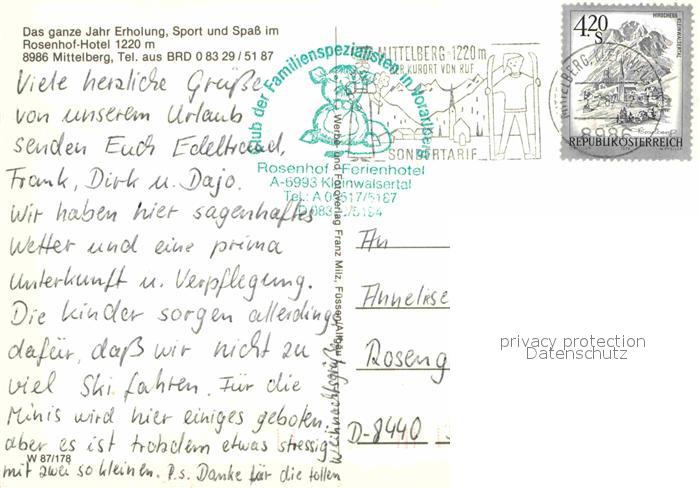 Das ganze Jahr Erholung, Sport und Spaß im
Rosenhof-Hotel 1220 m
8986 Mittelberg, Tel. aus BRD 0 83 29 / 51 87
Viele herzliche Grüße
von unserem Urlaub
senden Euch Edeltraud,
Frank, Dirk u. Dajo.
Wir haben hier sagenhaftes
Wetter und eine prima
Unterkunft u. Verpflegung.
Die Kinder sorgen allerdings
dafür, daß wir nicht zu
viel Ski fahren. Für die
Minis wird hier einiges geboten,
aber es ist trotzdem etwas stressig
mit zwei so kleinen. P.s. Danke für die tollen
Weihnachtsgrüße
W 87/178
Werbe- und Fotoverlag Franz Milz, Füssen/Allgäu
Club der Familienspezialisten in Vorarlberg
Rosenhof-Ferienhotel
A-6993 Kleinwalsertal
Tel.: A 05517/5187
MITTELBERG-1220m
DER KURORT VON RUF
SONDERTARIF
8986
4.20
S
HIRSCHEGG
KLEINWALSERTAL
REPUBLIK ÖSTERREICH
An
Annelise
Roseng
D-8440
privacy protection
Datenschutz